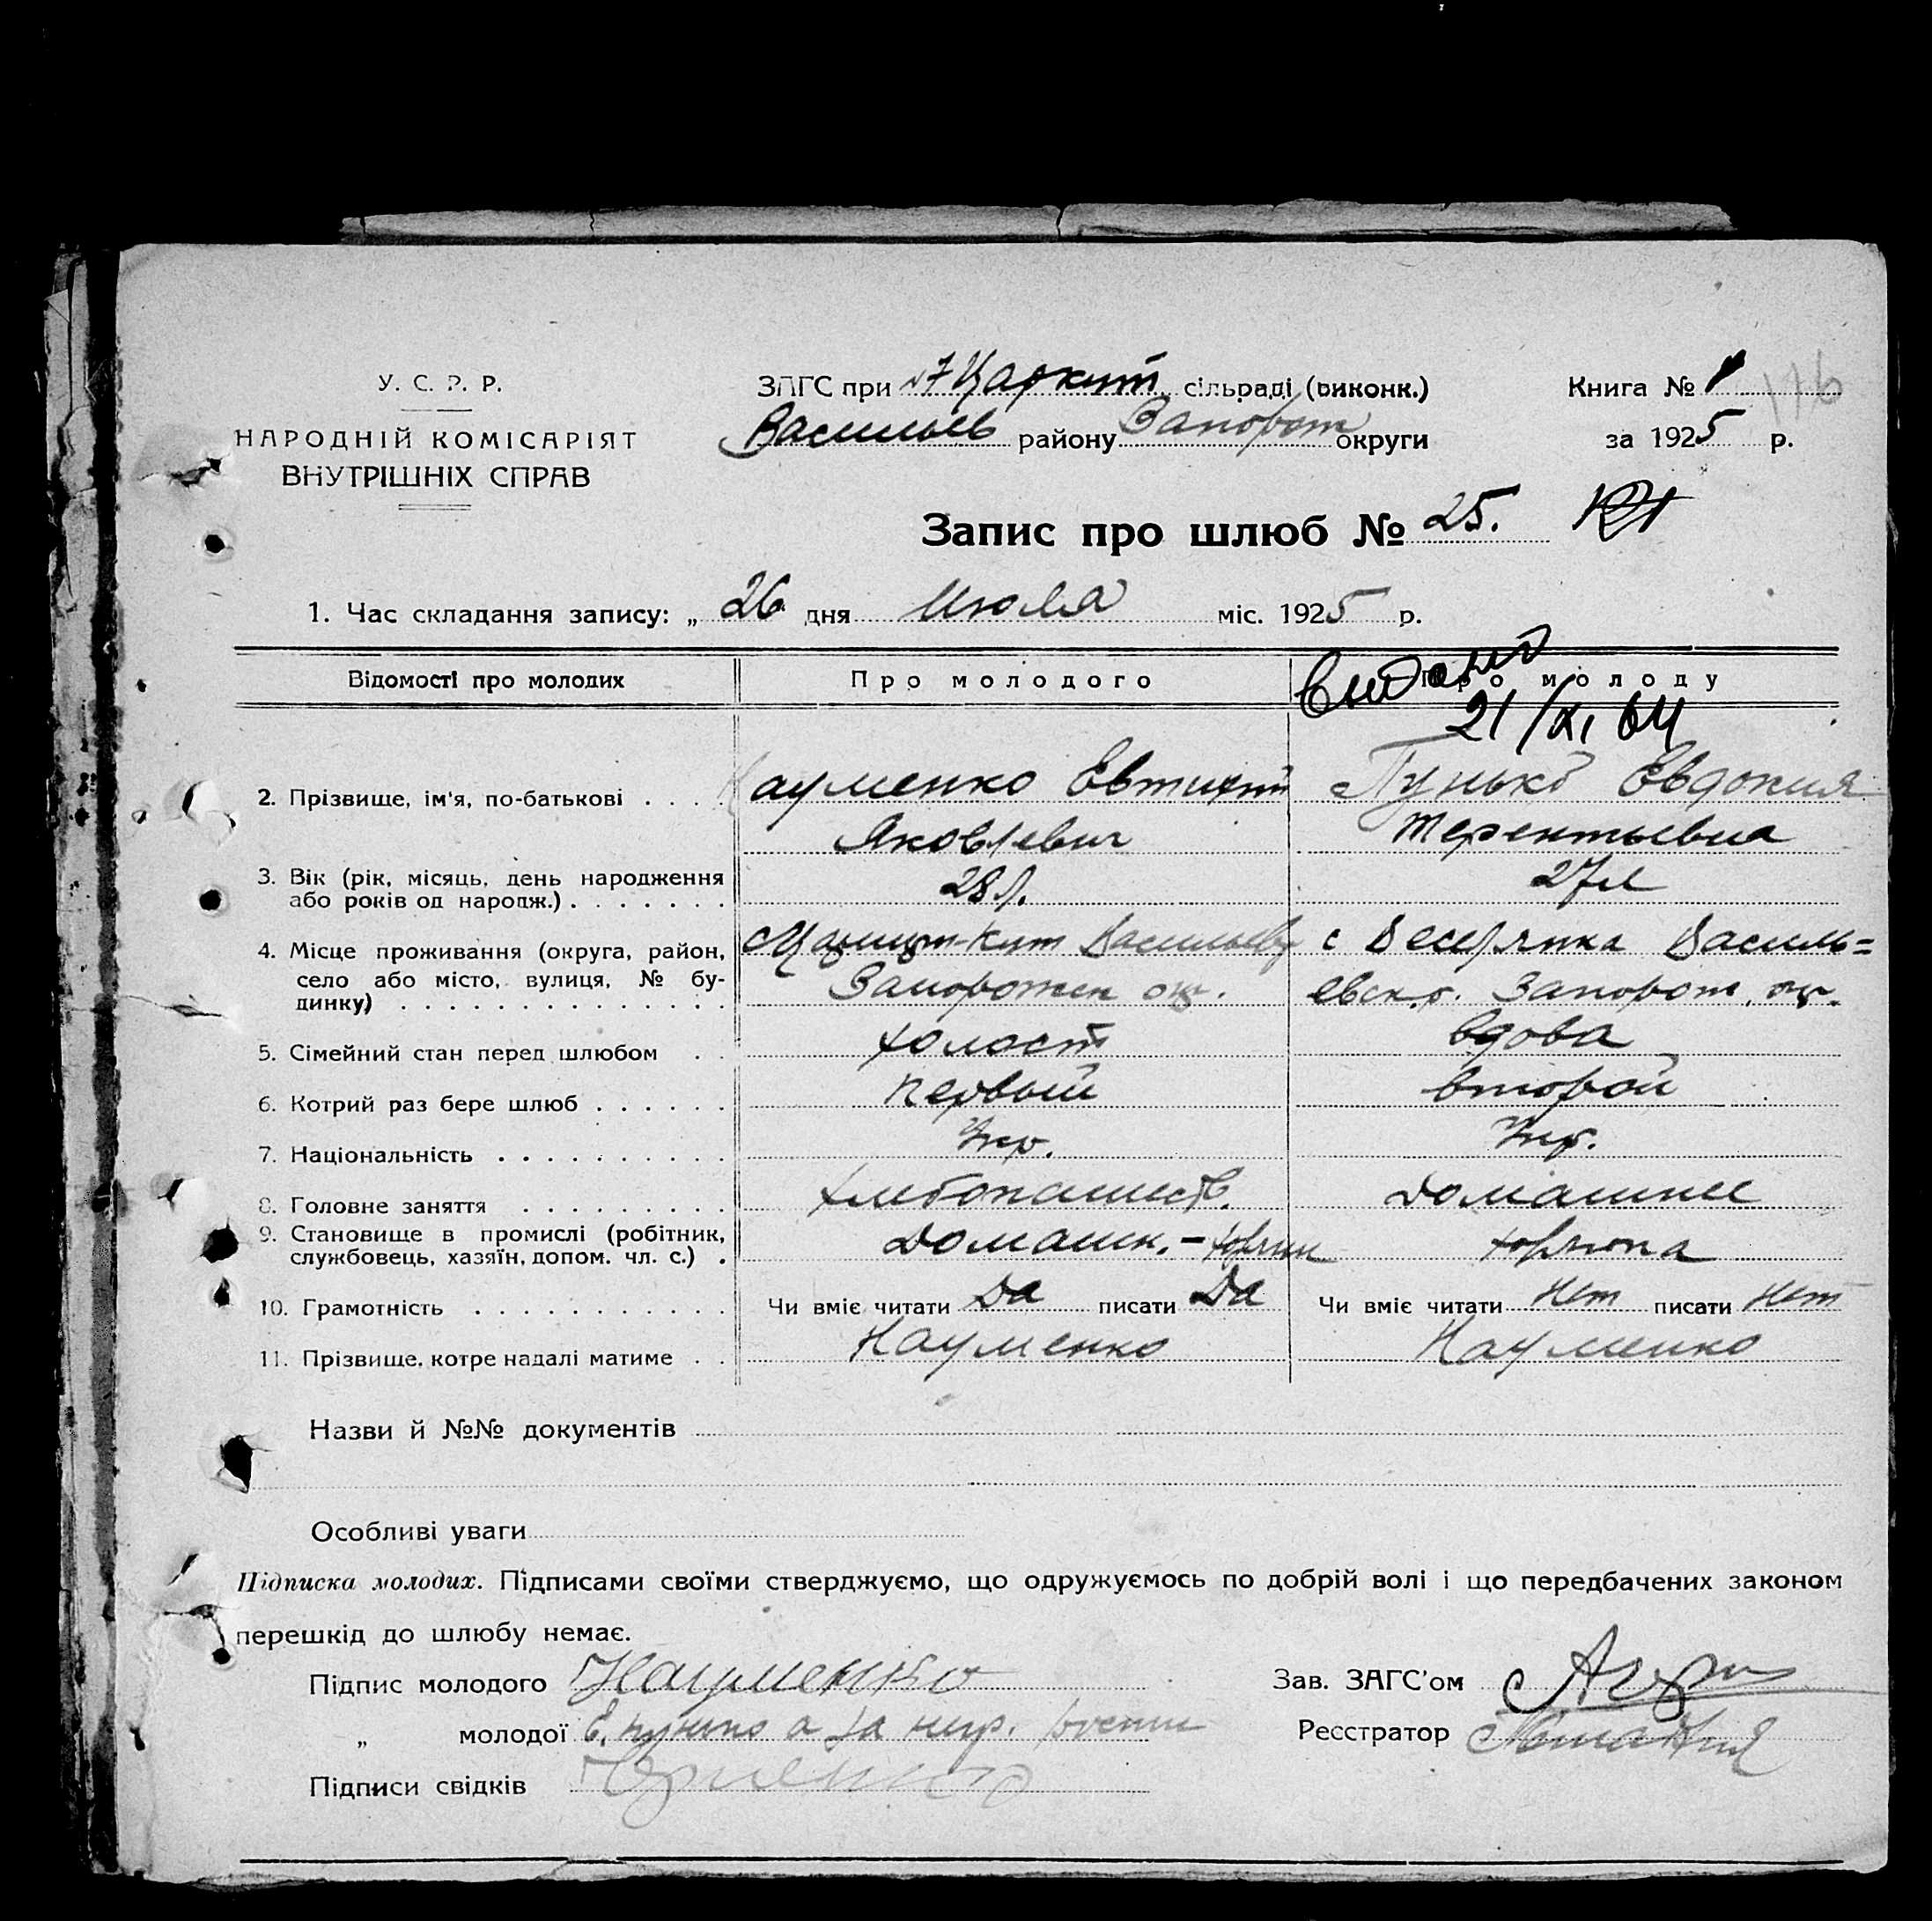 У. С. Р. Р.
НАРОДНІЙ КОМІСАРІЯТ
ВНУТРІШНІХ СПРАВ
ЗАГС при Царкут сільраді (виконк.)
Васильев району Запорож округи
Книга № 1 116
за 1925 р.
Запис про шлюб № 25.
1. Час складання запису: „ 26 дня Июля міс. 1925 р.
Відомості про молодих Про молодого Про молоду
21/XI 64
2. Прізвище, ім'я, по-батькові . . . . Науменко Пунько Евдокия
Яковлевич Терентьевна
3. Вік (рік, місяць, день народження
або років од народж.) . . . . . . . 28 л. 27 л
4. Місце проживання (округа, район,
село або місто, вулиця, № бу-
динку) . . . . . . . . . . . . . .
Васильев с Веселянка Василь=
Запорожск ок. евск. р. Запорож. ок.
5. Сімейний стан перед шлюбом . . холост вдова
6. Котрий раз бере шлюб . . . . . . первый второй
7. Національність . . . . . . . . . . Укр. Укр.
8. Головне заняття . . . . . . . . . хлебопашеств. Домашнее
9. Становище в промислі (робітник,
службовець, хазяїн, допом. чл. с.) . Домашн.
10. Грамотність . . . . . . . . . . . Чи вміє читати Да писати Да Чи вміє читати Нет писати Нет
11. Прізвище, котре надалі матиме . . Науменко Науменко
Назви й №№ документів
Особливі уваги
Підписка молодих. Підписами своїми стверджуємо, що одружуємось по добрій волі і що передбачених законом
перешкід до шлюбу немає.
Підпис молодого Науменко
Зав. ЗАГС'ом
„ молодої Е. Пунько а за негр.
Реєстратор
Підписи свідків